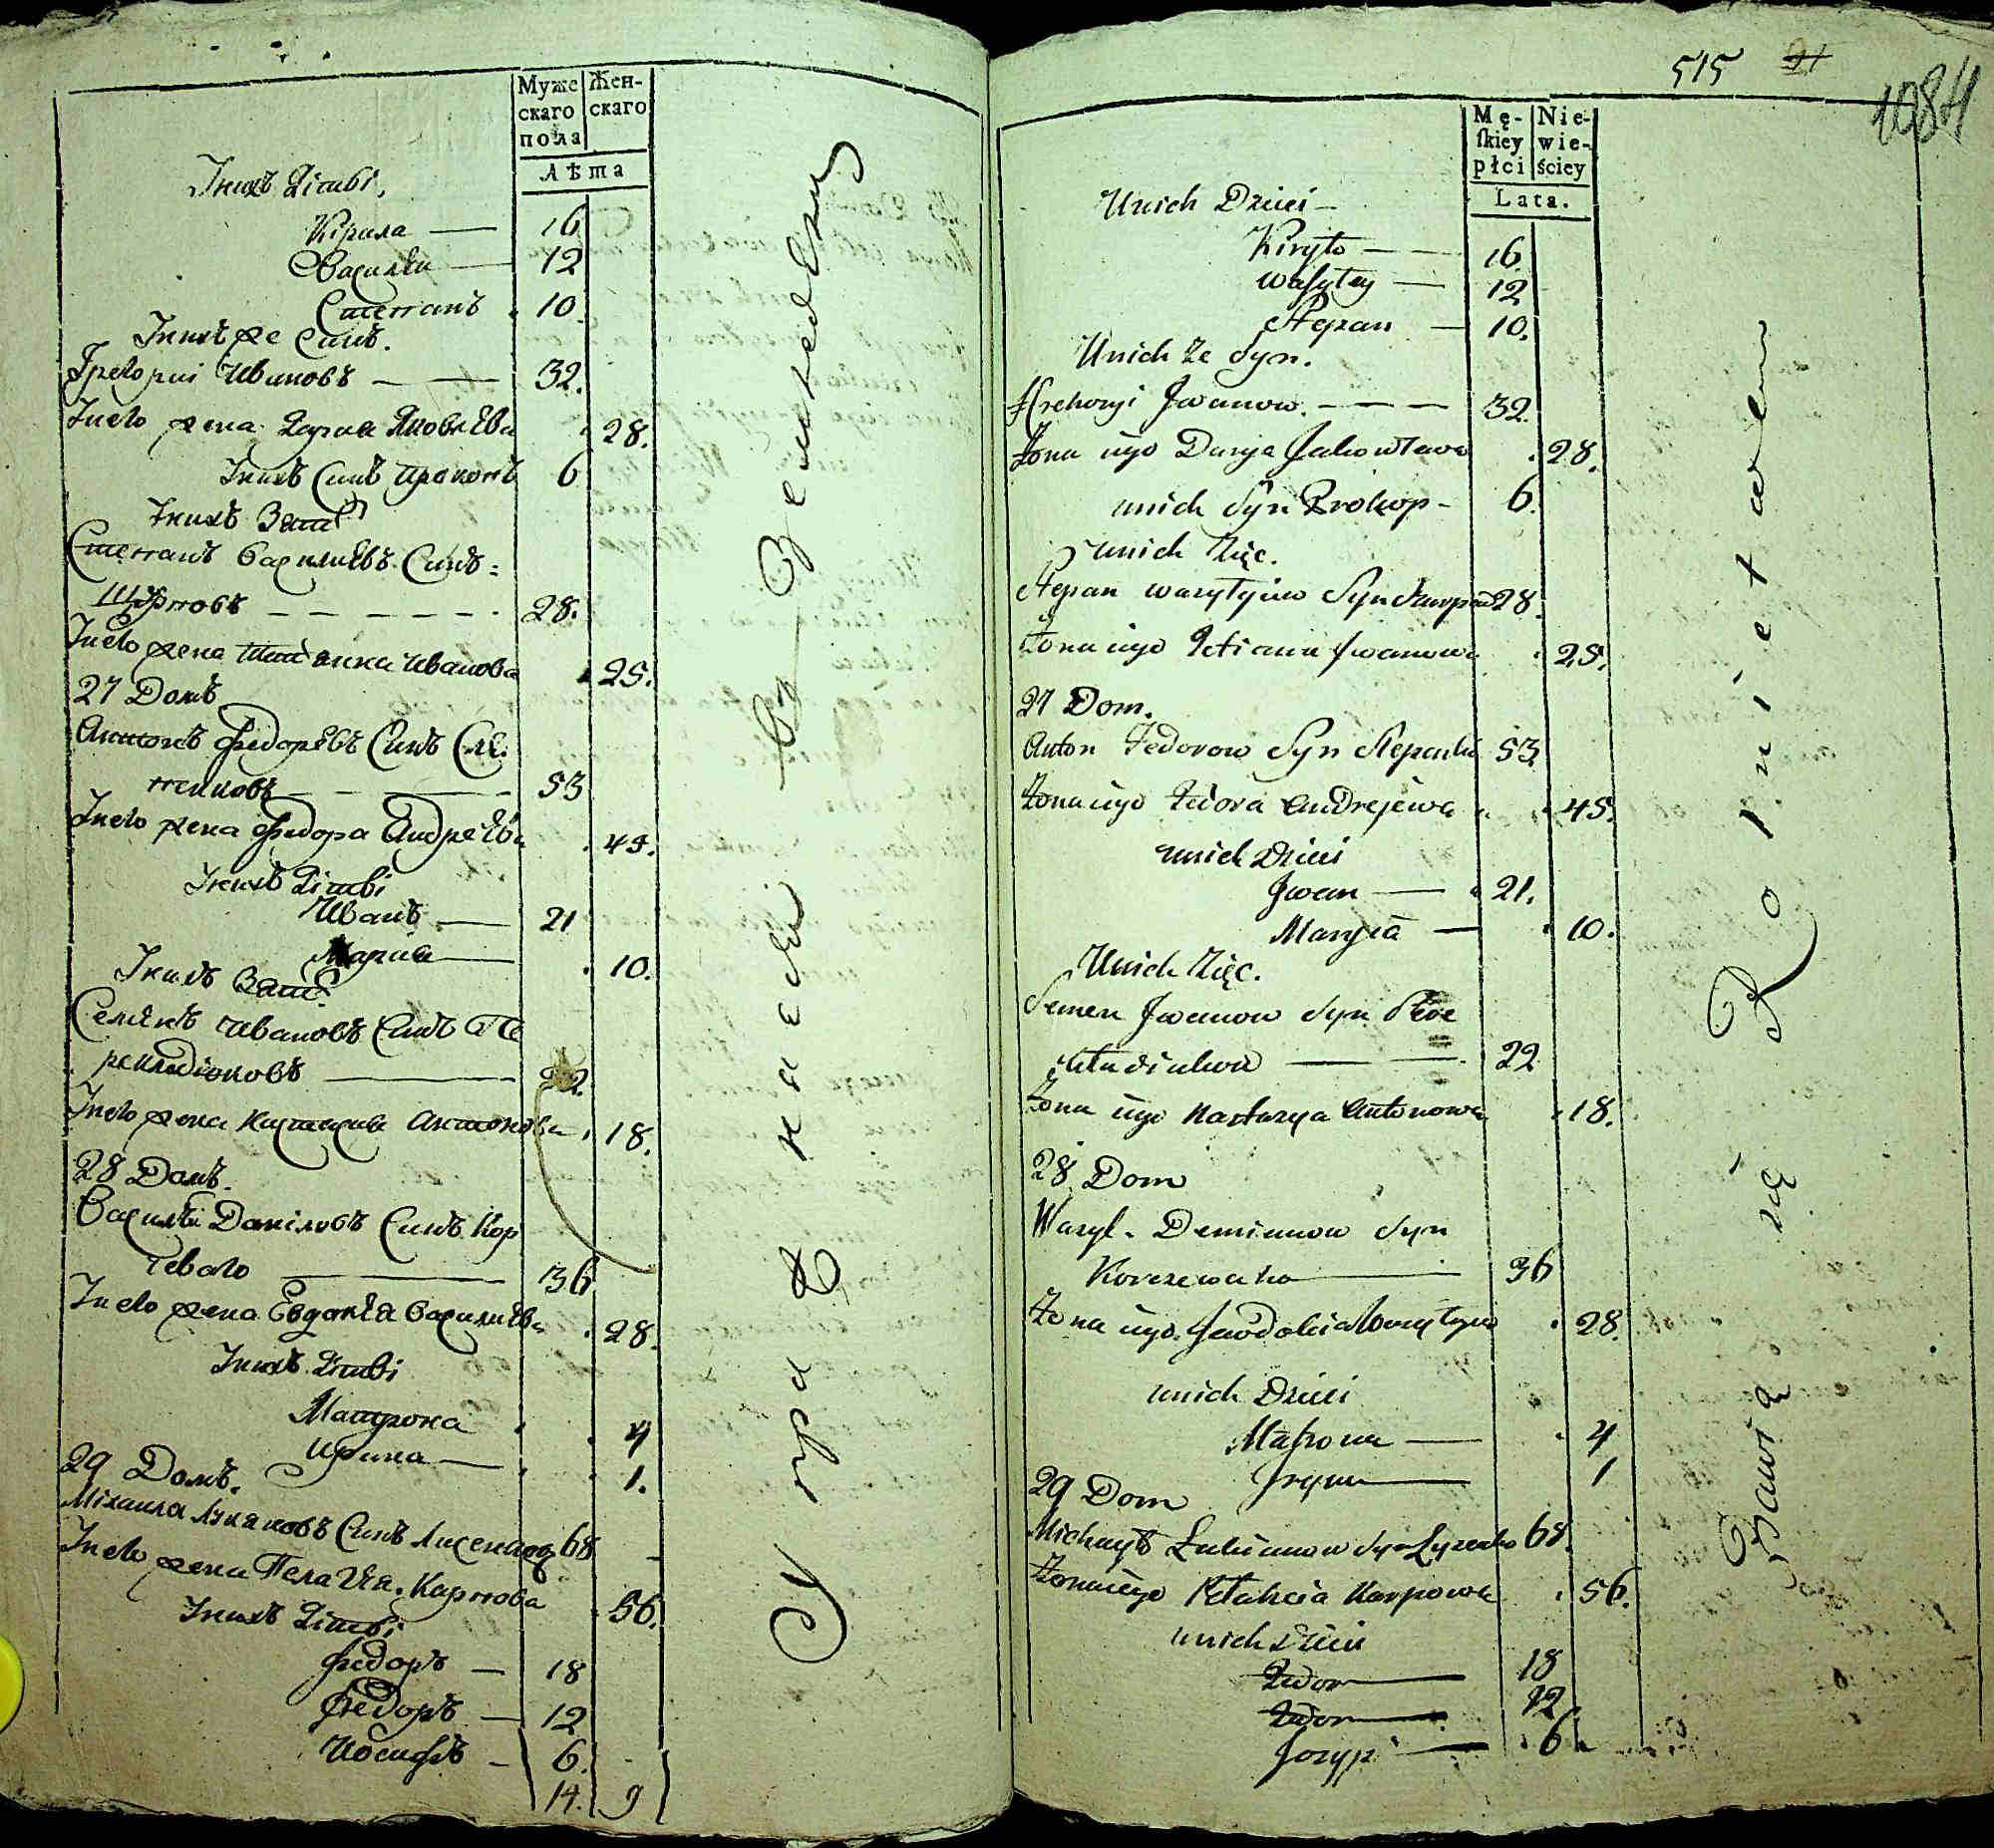 Муже
скаго
пола
Жен-
скаго
Лѣта
Уних Дѣти,
Кирила — 16
Василий — 12
Степанъ 10.
Уних же Синъ.
Григорий Ивановъ — 32.
Унего жена Дарья Яковлѣва 28.
Уних Синъ Прокопъ 6
Уних Зять
Степанъ Василиевъ Синъ =
28.
Унего жена Татяния Иванова 25.
27 Домъ
Антонъ Федорѣвъ Синъ Сте.
пенковъ — 53
Унего жена Федора Андрѣева 45.
Уних Дѣти
Иванъ — 21
Мария — 10.
Уних Зять.
Семѣнъ Ивановъ Синъ Пе
22.
Унего жена Настасия Антонова 18.
28 Домъ.
Василѣй Даниловъ Синъ Кор
чеваго — 36
Унего жена Евдокѣя Василиева 28.
Уних Дѣти
Матрона 4
Ирина — 1.
29 Домъ.
Михаила Лукяновъ Синъ Лисенков 68
Унего жена Пелагѣя Карпова 56.
Уних Дѣти
Федоръ — 18
Федоръ — 12
Иосифъ — 6.
14. 9
Упражняется въ земледелии
515 21
1084
Mę-
ſkiey
płci
Nie-
wie-
ściey
Lata.
Unich Dzieci —
Kiryło — 16.
Wasyley — 12
Stepan — 10.
Unich że Syn.
Hrehoryi Jwanow. — 32.
Żona iego Darya Jakowlewa 28.
unich Syn Prokop — 6.
unich Zięc.
Stepan Wasylyiow Syn 28.
Żona iego Tetiana Jwanowa 25.
27 Dom.
Anton Fedorow Syn Stepenko 53.
Żona iego Fedora Andrejewa 45.
unich Dzieci
Jwan — 21.
Maryia — 10.
Unich Zięc.
Semen Jwanow Syn Pere
22
Żona iego Nastazya Antonowa 18.
28 Dom
Wazyl. Demianow Syn
Korczewaho — 36
Żona iego Jewdokia Wasylyiow 28.
unich Dzieci
Matrona — 4
Jryna — 1
29 Dom
Michayło Łukianow Syn Łyzenko 68.
Żona iego Pełahcia Karpowa 56.
unich Dzieci
Fedor — 18
Fedor — 12
Jozyp — 6
Bawią się Rolnictwem